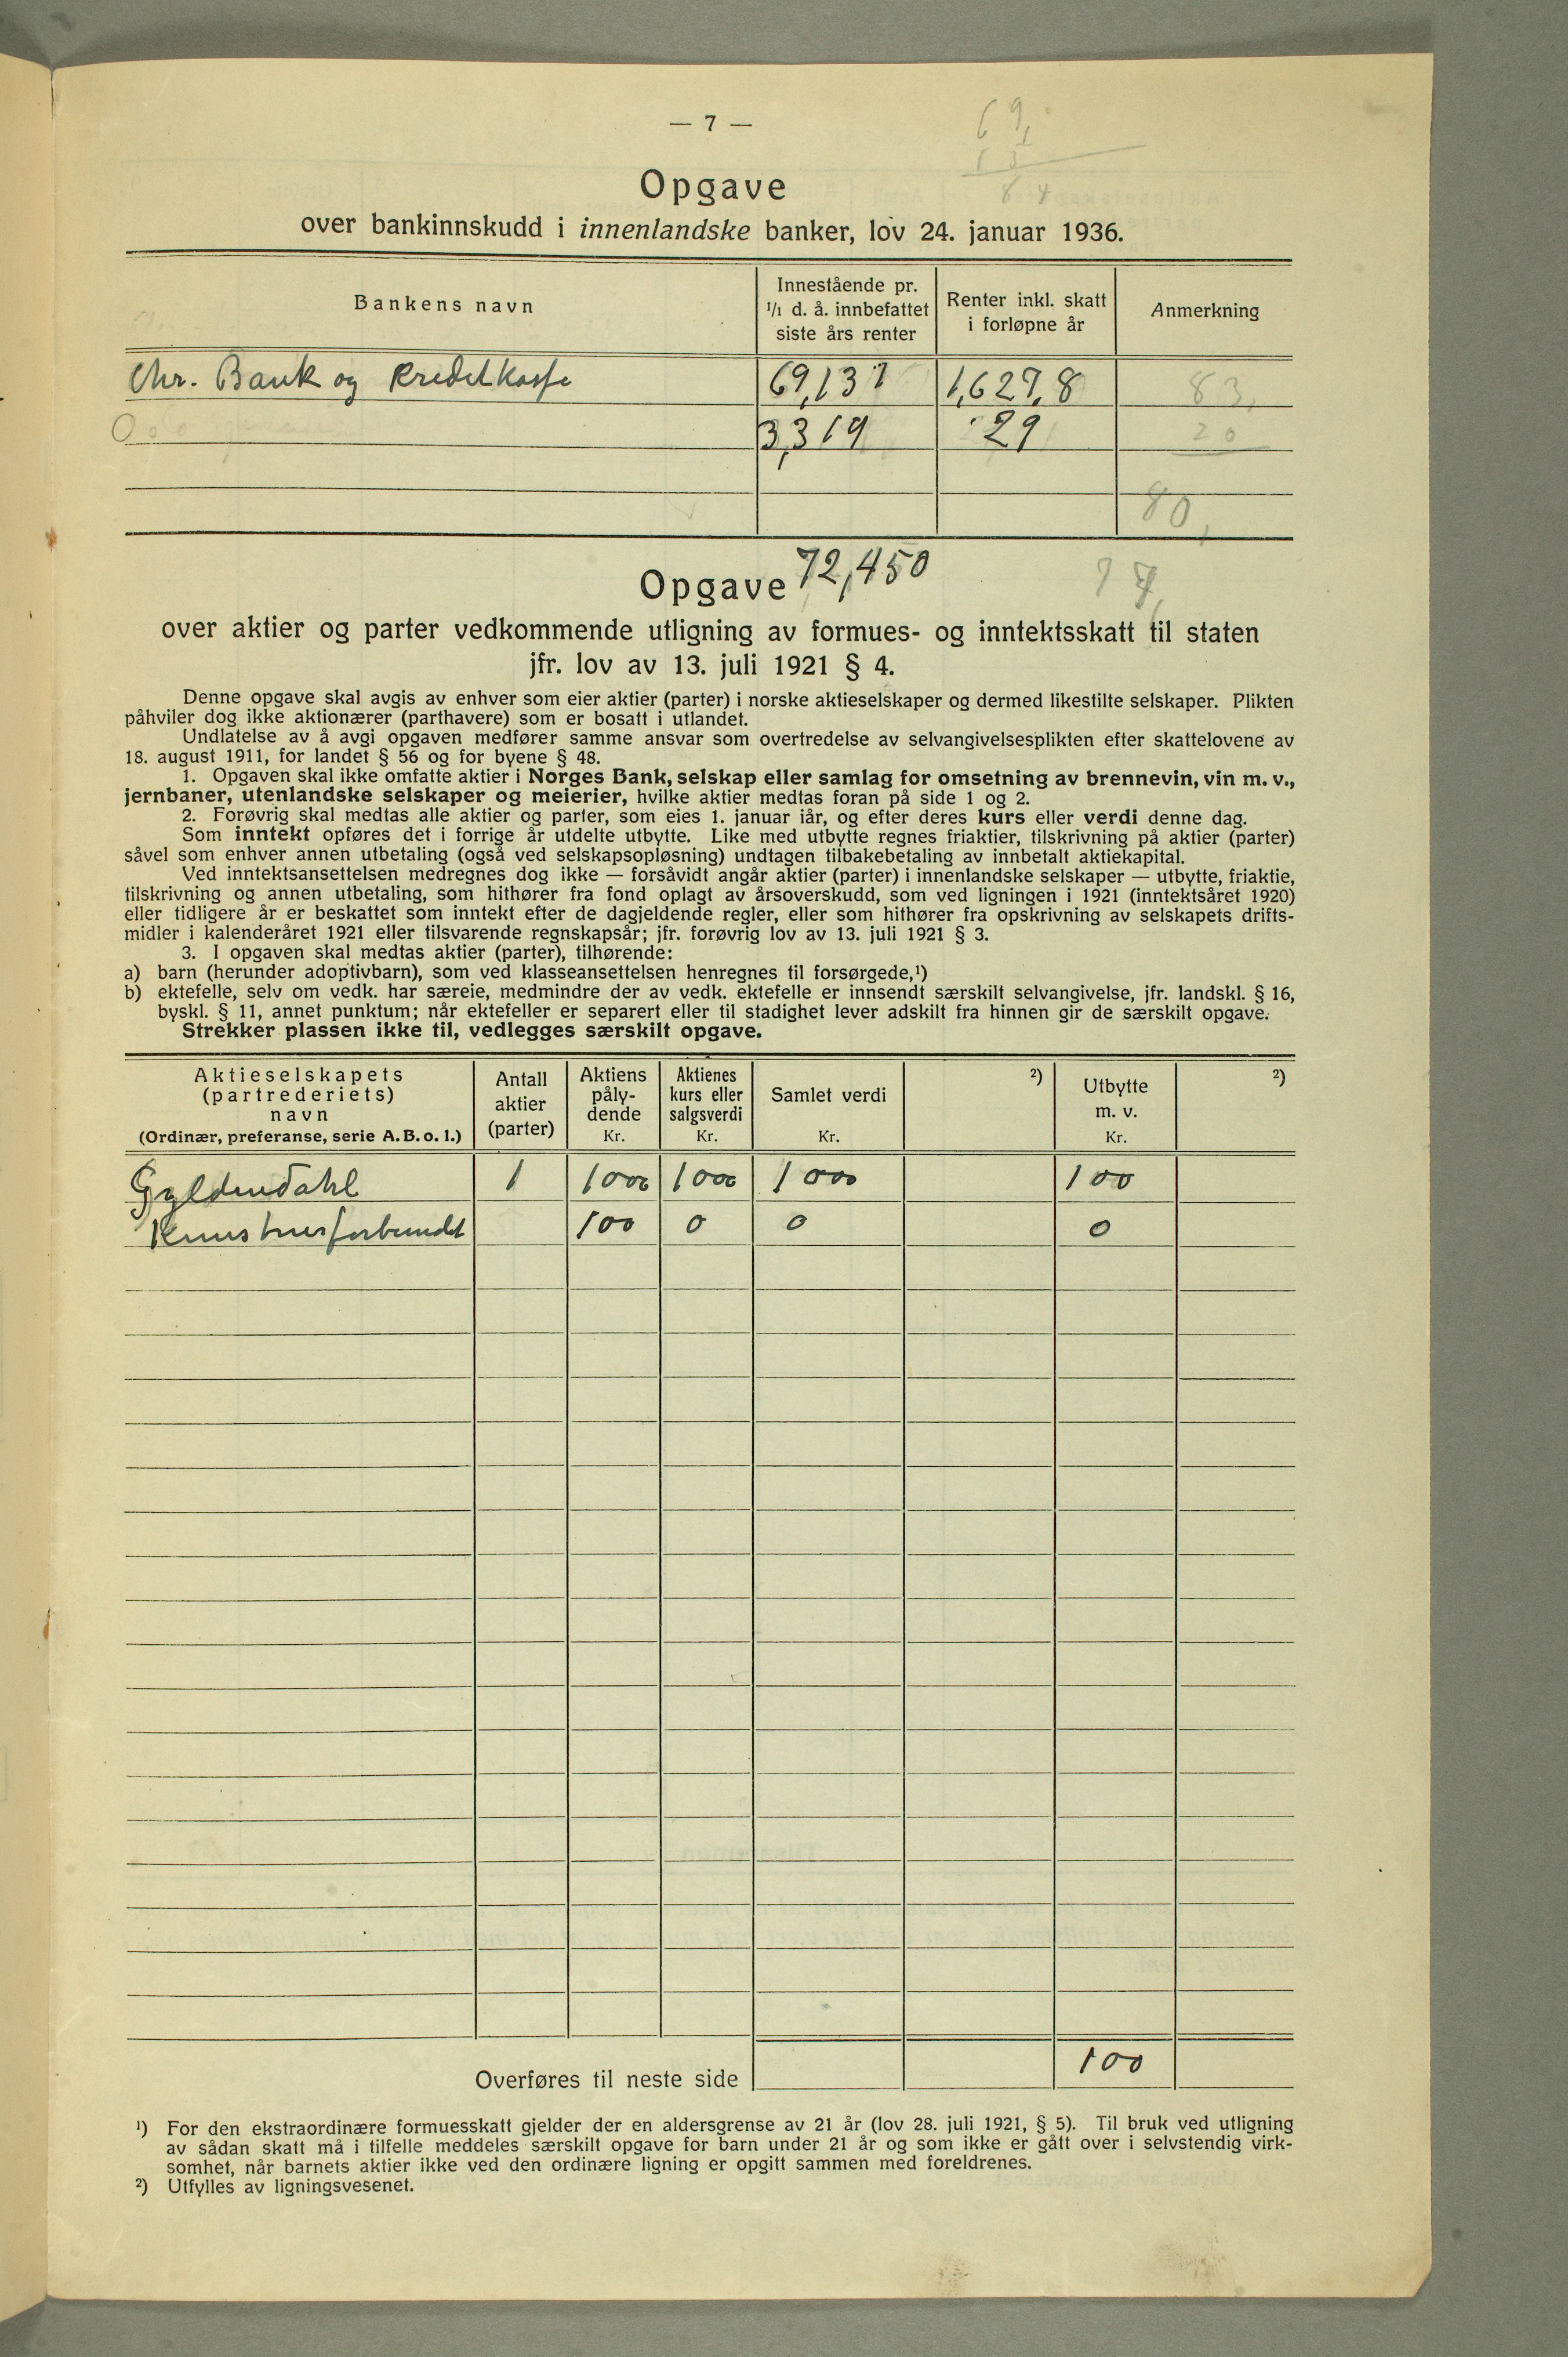 — 7 —
69,
13
84
Opgave
over bankinnskudd i innenlandske banker, lov 24. januar 1936.
Bankens navn
Innestående pr. 1/1 d. å. innbefattet siste års renter
Renter inkl. skatt i forløpne år
Anmerkning
Chr. Bank og Kreditkasse 69,131 1,627,8 83,
3,319 29 20
80,
72,450
77,
Opgave
over aktier og parter vedkommende utligning av formues- og inntektsskatt til staten
jfr. lov av 13. juli 1921 § 4.
Denne opgave skal avgis av enhver som eier aktier (parter) i norske aktieselskaper og dermed likestilte selskaper. Plikten
påhviler dog ikke aktionærer (parthavere) som er bosatt i utlandet.
Undlatelse av å avgi opgaven medfører samme ansvar som overtredelse av selvangivelsesplikten efter skattelovene av
18. august 1911, for landet § 56 og for byene § 48.
1. Opgaven skal ikke omfatte aktier i Norges Bank, selskap eller samlag for omsetning av brennevin, vin m. v.,
jernbaner, utenlandske selskaper og meierier, hvilke aktier medtas foran på side 1 og 2.
2. Forøvrig skal medtas alle aktier og parter, som eies 1. januar iår, og efter deres kurs eller verdi denne dag.
Som inntekt opføres det i forrige år utdelte utbytte. Like med utbytte regnes friaktier, tilskrivning på aktier (parter)
såvel som enhver annen utbetaling (også ved selskapsopløsning) undtagen tilbakebetaling av innbetalt aktiekapital.
Ved inntektsansettelsen medregnes dog ikke — forsåvidt angår aktier (parter) i innenlandske selskaper — utbytte, friaktie,
tilskrivning og annen utbetaling, som hithører fra fond oplagt av årsoverskudd, som ved ligningen i 1921 (inntektsåret 1920)
eller tidligere år er beskattet som inntekt efter de dagjeldende regler, eller som hithører fra opskrivning av selskapets drifts-
midler i kalenderåret 1921 eller tilsvarende regnskapsår; jfr. forøvrig lov av 13. juli 1921 § 3.
3. I opgaven skal medtas aktier (parter), tilhørende:
a) barn (herunder adoptivbarn), som ved klasseansettelsen henregnes til forsørgede,¹)
b) ektefelle, selv om vedk. har særeie, medmindre der av vedk. ektefelle er innsendt særskilt selvangivelse, jfr. landskl. § 16,
byskl. § 11, annet punktum; når ektefeller er separert eller til stadighet lever adskilt fra hinnen gir de særskilt opgave.
Strekker plassen ikke til, vedlegges særskilt opgave.
Aktieselskapets
(partrederiets)
navn
(Ordinær, preferanse, serie A. B. o. l.)
Antall aktier (parter)
Aktiens påly- dende Kr.
Aktienes kurs eller salgsverdi Kr.
Samlet verdi Kr.
²)
Utbytte m. v. Kr.
²)
Gyldendahl 1 1000 1000 1000 100
Kunstnerforbundet 100 0 0 0
Overføres til neste side 100
¹) For den ekstraordinære formuesskatt gjelder der en aldersgrense av 21 år (lov 28. juli 1921, § 5). Til bruk ved utligning
av sådan skatt må i tilfelle meddeles særskilt opgave for barn under 21 år og som ikke er gått over i selvstendig virk-
somhet, når barnets aktier ikke ved den ordinære ligning er opgitt sammen med foreldrenes.
²) Utfylles av ligningsvesenet.